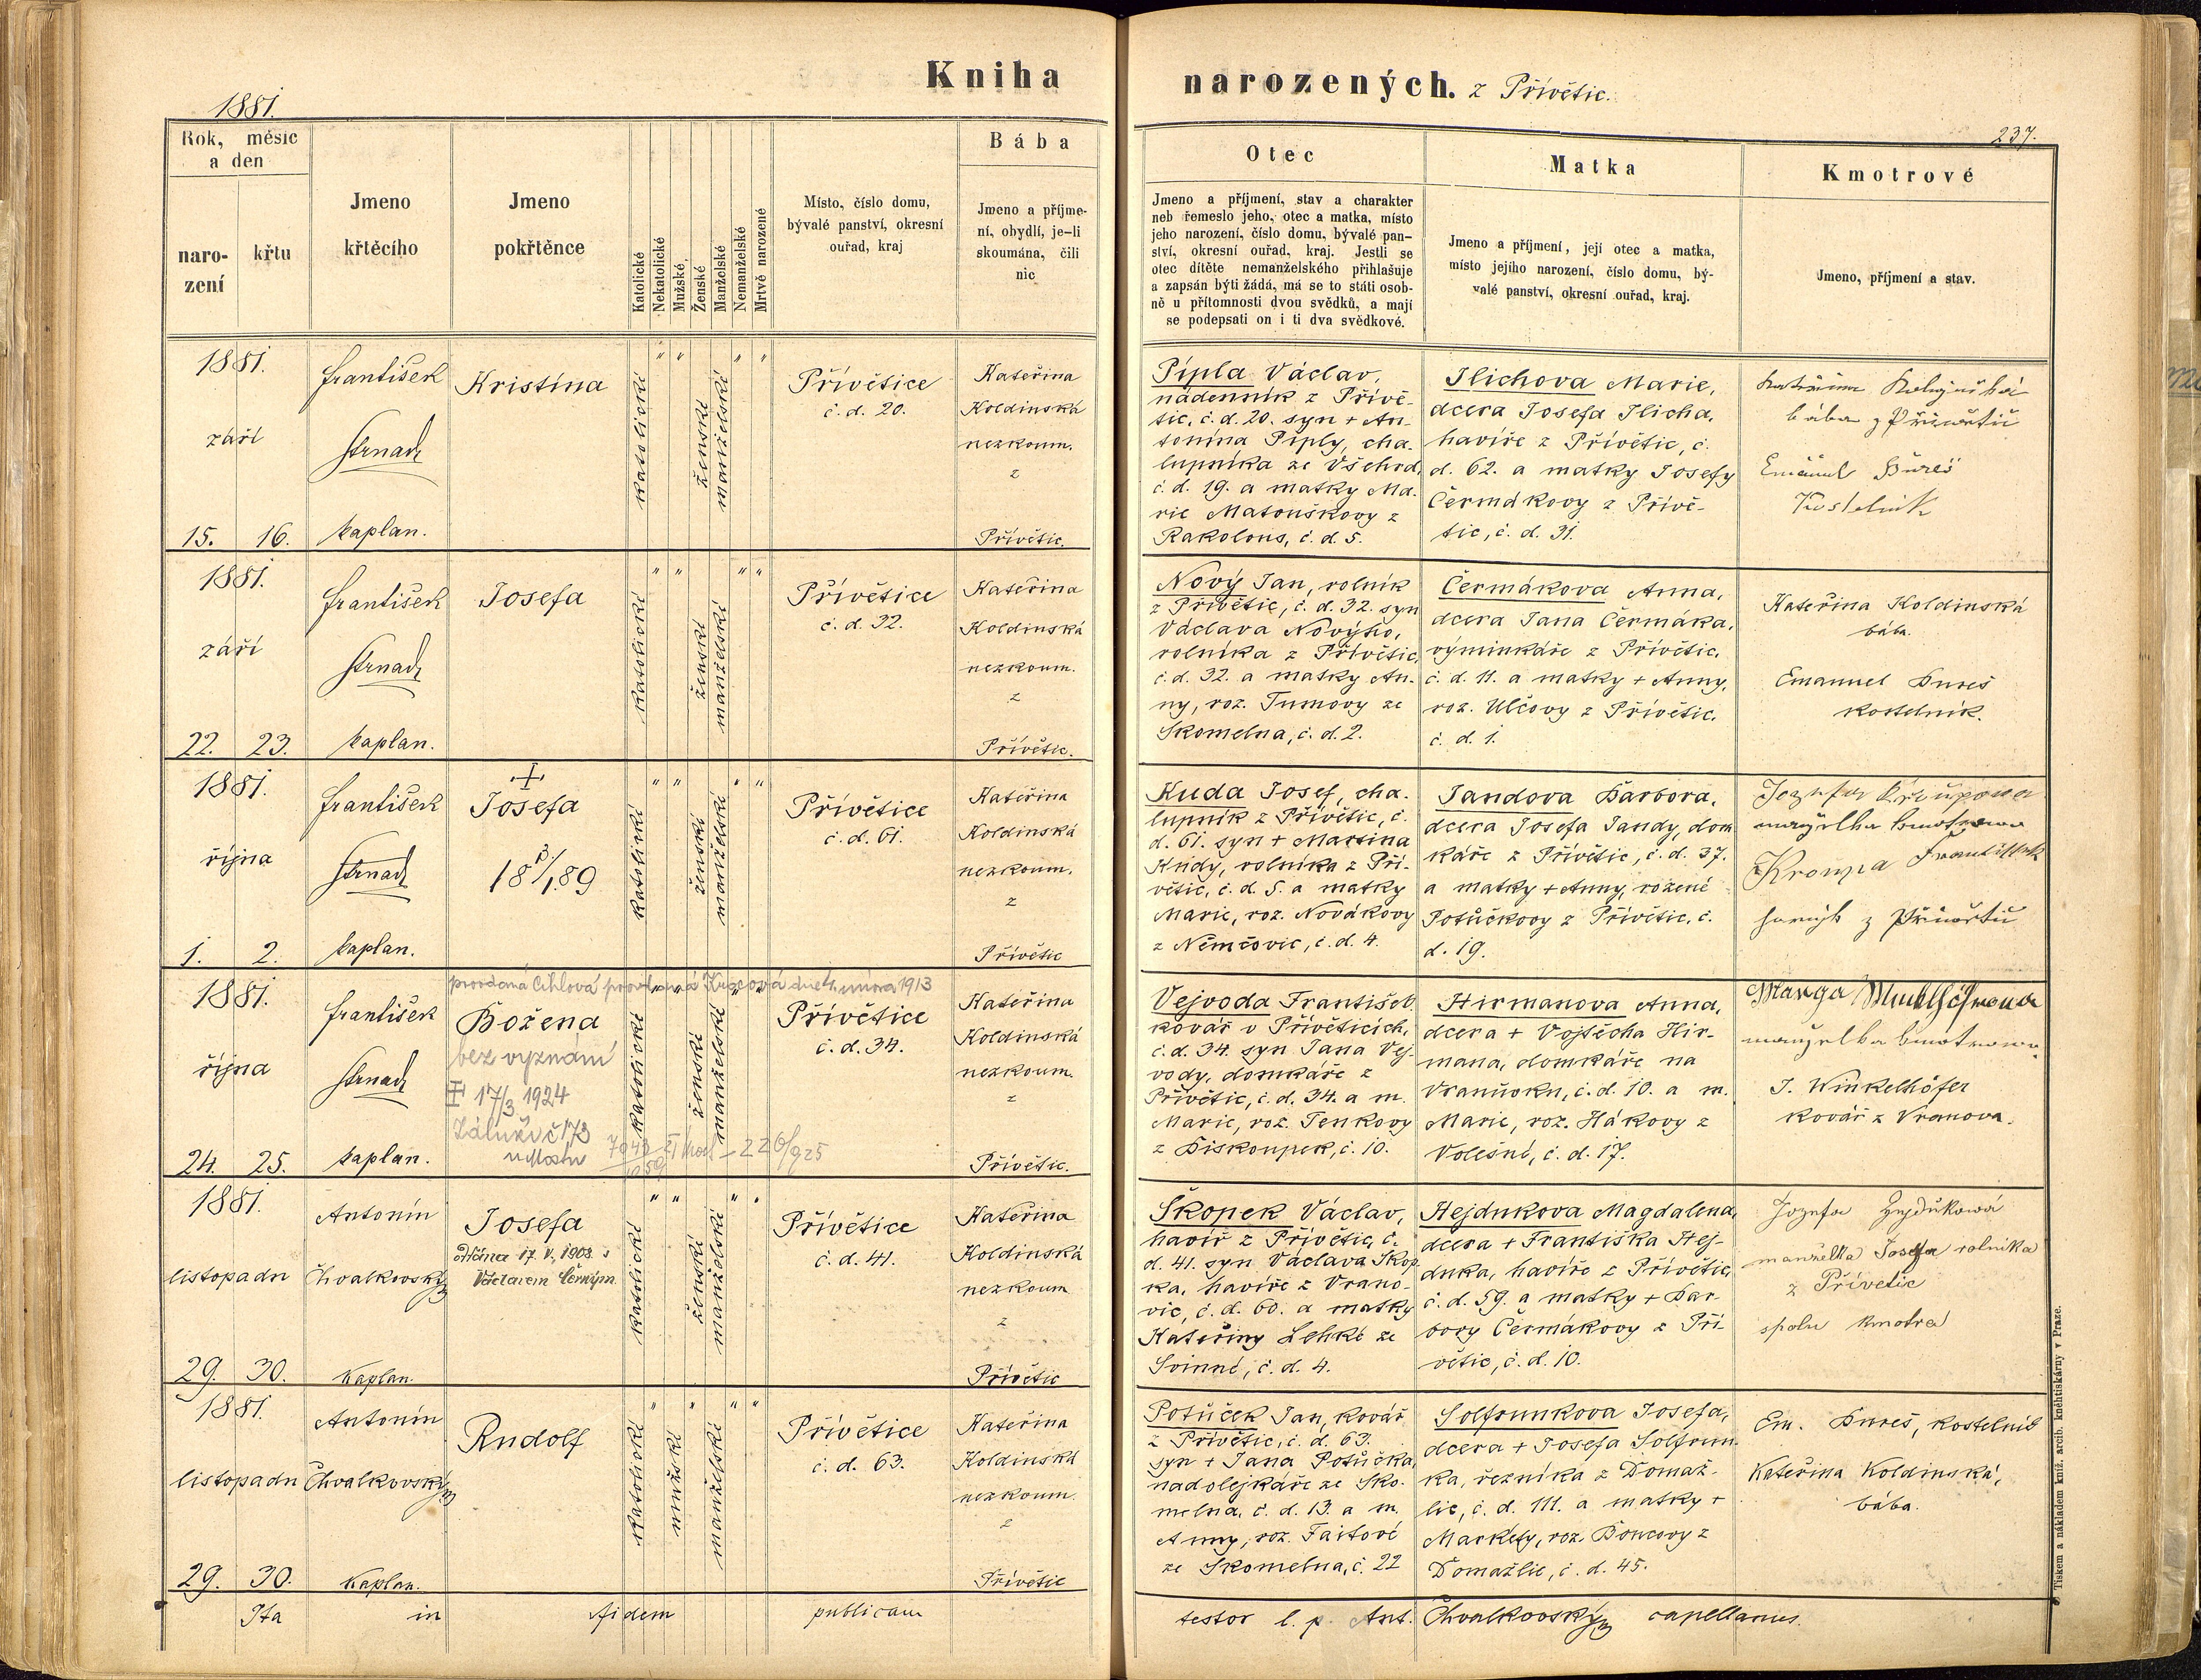 Kniha
narozených. z Přívětic.
1881.
237.
Rok, měsíc
a den
naro-
zení
křtu
Jmeno
křtěcího
Jmeno
pokřtěnce
Katolické
Nekatolické
Mužské
Ženské
Manželské
Nemanželské
Mrtvě narozené
Místo, číslo domu,
bývalé panství, okresní
ouřad, kraj
Bába
Jmeno a příjme-
ní, obydlí, je-li
skoumána, čili
nic
Otec
Jmeno a příjmení, stav a charakter
neb řemeslo jeho, otec a matka, místo
jeho narození, číslo domu, bývalé pan-
ství, okresní ouřad, kraj. Jestli se
otec dítěte nemanželského přihlašuje
a zapsán býti žádá, má se to státi osob-
ně u přítomnosti dvou svědků, a mají
se podepsati on i ti dva svědkové.
Matka
Jmeno a příjmení, její otec a matka,
místo jejího narození, číslo domu, bý-
valé panství, okresní ouřad, kraj.
Kmotrové
Jmeno, příjmení a stav.
1881.
září
15. 16.
František
Strnad
kaplan.
Kristina
katolické
ženské
manželské
" " " "
Přívětice
č. d. 20.
Kateřina
Koldinská
nezkoum.
z
Přívětic.
Pípla Václav,
nádenník z Přívě-
tic, č. d. 20. syn + An-
tonína Píply, cha-
lupníka ze Všehrd,
č. d. 19. a matky Ma-
rie Matouškovy z
Rakolous, č. d. 5.
Jlichova Marie,
dcera Josefa Jlicha,
havíře z Přívětic, č.
d. 62. a matky Josefy
Čermákovy z Přívě-
tic, č. d. 31.
bába z
Emanuel Bureš
Kostelnik
1881.
září
22. 23.
František
Strnad
kaplan.
Josefa
katolické
ženské
manželské
" " " "
Přívětice
č. d. 32.
Kateřina
Koldinská
nezkoum.
z
Přívětic.
Nový Jan, rolník
z Přívětic, č. d. 32. syn
Václava Nového,
rolníka z Přívětic,
č. d. 32. a matky An-
ny, roz. Tumovy ze
Skomelna, č. d. 2.
Čermákova Anna,
dcera Jana Čermáka,
výminkáře z Přívětic,
č. d. 11. a matky + Anny,
roz. Ulčovy z Přívětic,
č. d. 1.
Kateřina Koldinská
bába.
Emanuel Bureš
kostelník.
1881.
října
1. 2.
František
Strnad
kaplan.
+
Josefa
katolické
ženské
manželské
" " " "
Přívětice
č. d. 61.
Kateřina
Koldinská
nezkoum.
z
Přívětic
Kuda Josef, cha-
lupník z Přívětic, č.
d. 61. syn + Martina
Kudy, rolníka z Pří-
větic, č. d. 5. a matky
Marie, roz. Novákovy
z Němčovic, č. d. 4.
Jandova Barbora,
dcera Josefa Jandy, dom
káře z Přívětic, č. d. 37.
a matky + Anny, rozené
Potůčkovy z Přívětic, č.
d. 19.
František
z
1881.
října
24. 25.
František
Strnad
kaplan.
Božena
bez vyznání
+ 17/3 1924
Záluží č 173
u Mostu
katolické
ženské
manželské
dne 4. února 1913
Přívětice
č. d. 34.
Kateřina
Koldinská
nezkoum.
z
Přívětic.
Vejvoda František
kovář v Příveticích,
č. d. 34. syn Jana Vej-
vody, domkáře z
Přívětic, č. d. 34. a m.
Marie, roz. Tenkovy
z Biskoupek, č. 10.
Hirmanova Anna,
dcera + Vojtěcha Hir-
mana, domkáře na
č. d. 10. a m.
Marie, roz. Hákovy z
Volešné, č. d. 17.
J. Winkelhöfer
kovář z Vranova.
1881.
listopadu
29. 30.
Antonín
Chvalkovský
Kaplan.
Josefa
oddána 17. V. 1903 s
Václavem Černým.
katolické
ženské
manželské
" " " "
Přívětice
č. d. 41.
Kateřina
Koldinská
nezkoum
z
Přívětic
Škopek Václav,
havíř z Přívětic, č.
d. 41. syn Václava Škop
ka, havíře z Vrano-
vic, č. d. 60. a matky
Kateřiny Lehké ze
Svinné, č. d. 4.
Hejdukova Magdalena,
dcera + Františka Hej-
duka, havíře z Přívětic,
č. d. 59. a matky + Bar-
bory Čermákovy z Pří-
větic, č. d. 10.
Jozefa Hejdukowá
manželka Josefa rolníka
z Přívetic
spolu kmotra
1881.
listopadu
29. 30.
Antonín
Chvalkovský
Kaplan.
Rudolf
katolické
mužské
manželské
" " " "
Přívětice
č. d. 63.
Kateřina
Koldinská
nezkoum.
z
Přívětic
Potůček Jan, kovář
z Přívětic, č. d. 63.
syn + Jana Potůčka,
nadolejkáře ze Sko-
melna, č. d. 13. a m.
Anny, roz. Faitové
ze Skomelna, č. 22
Solfrunkova Josefa,
dcera + Josefa Solfrun-
ka, řezníka z Domaž-
lic, č. d. 111. a matky +
Markéty, roz. Boucovy z
Domažlic, č. d. 45.
Em. Bureš, kostelník
Kateřina Koldinská,
bába.
Ita in fidem publicam testor l. p. Ant. Chvalkovský capellanus.
Tiskem a nákladem kníž. arcib. kněhtiskárny v Praze.